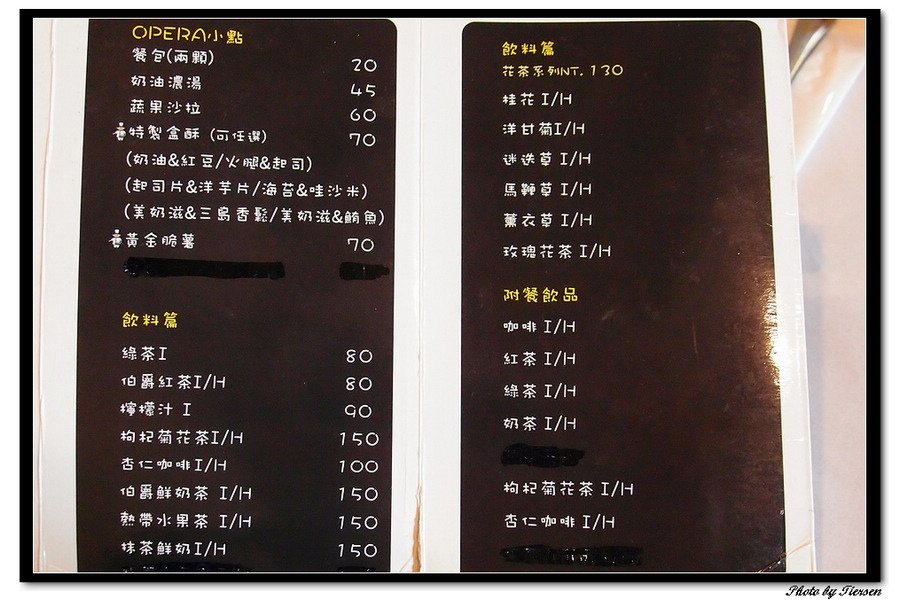 OPERA小點
餐包(兩顆) 20
奶油濃湯 45
蔬果沙拉 60
特製盒酥 (可任選) 70
(奶油&紅豆/火腿&起司)
(起司片&洋芋片/海苔&哇沙米)
(美奶滋&三島香鬆/美奶滋&鮪魚)
黃金脆薯 70
飲料篇
綠茶I 80
伯爵紅茶I/H 80
檸檬汁 I 90
枸杞菊花茶I/H 150
杏仁咖啡I/H 100
伯爵鮮奶茶 I/H 150
熱帶水果茶 I/H 150
抹茶鮮奶I/H 150
飲料篇
花茶系列NT. 130
桂花 I/H
洋甘菊I/H
迷迭草 I/H
馬鞭草 I/H
薰衣草 I/H
玫瑰花茶 I/H
附餐飲品
咖啡 I/H
紅茶 I/H
綠茶 I/H
奶茶 I/H
枸杞菊花茶 I/H
杏仁咖啡 I/H
Photo by Tiersen